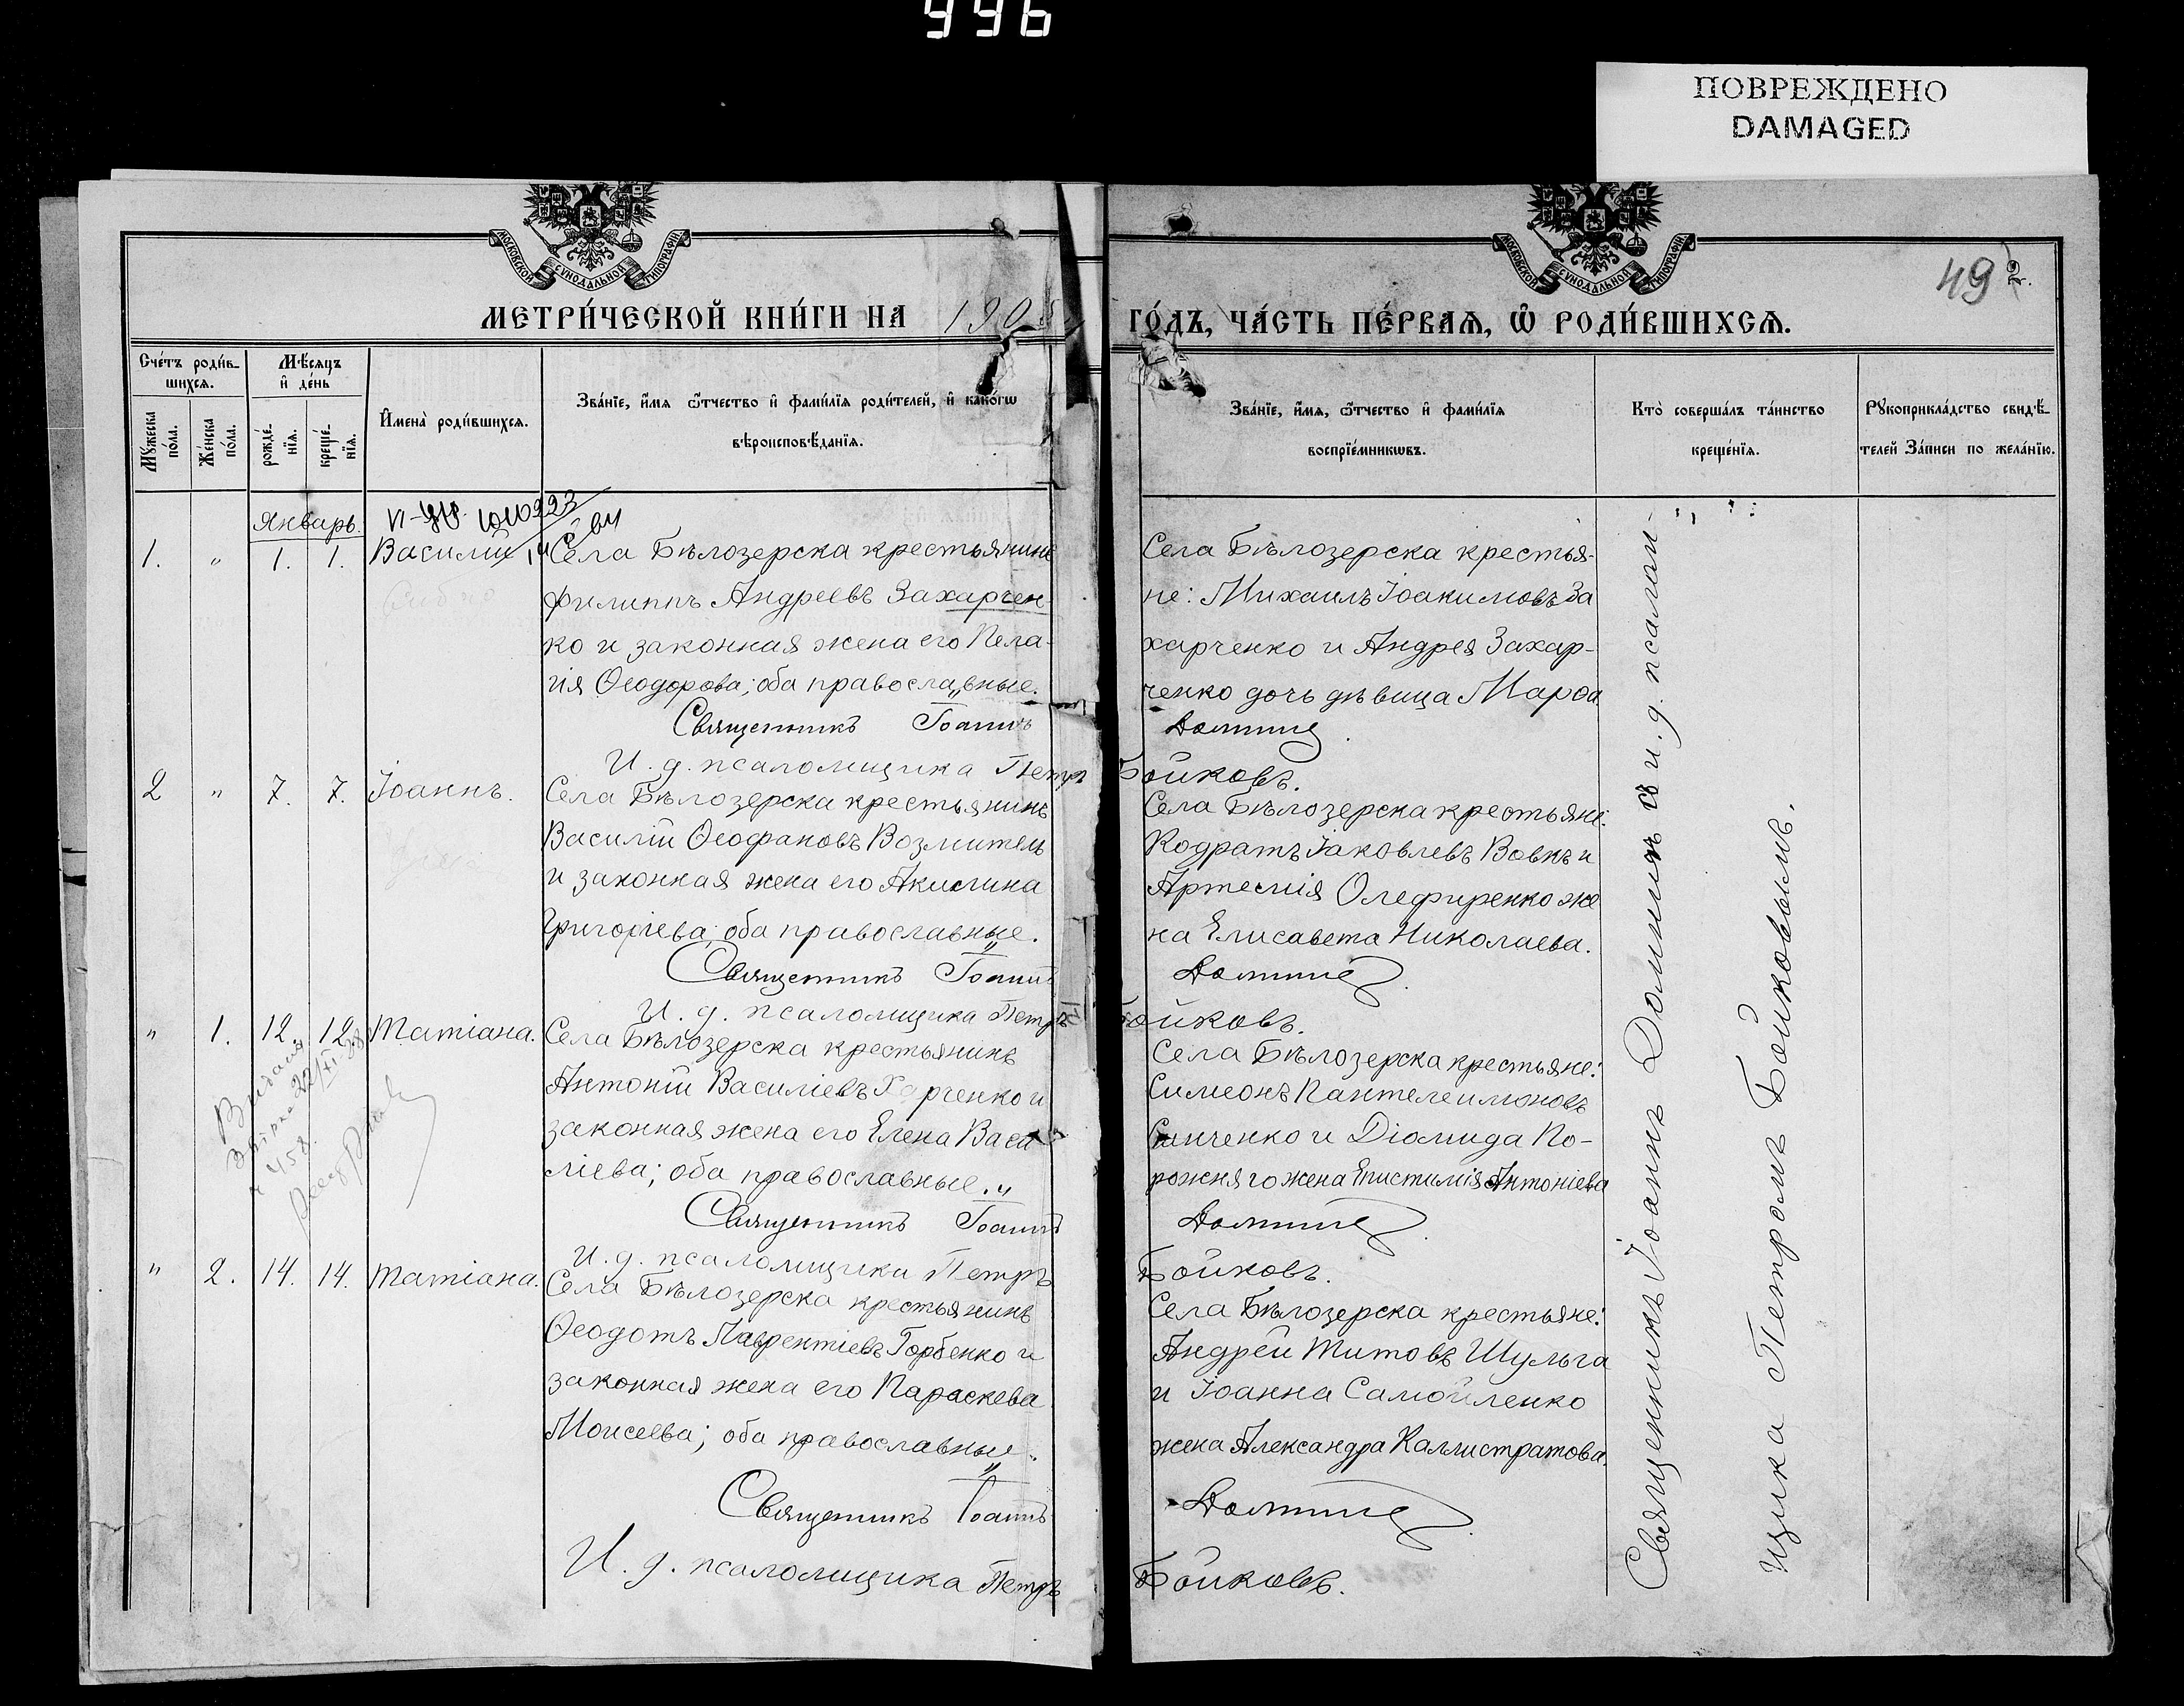 996
ПОВРЕЖДЕНО
DAMAGED
МОСКОВСКОЙ СѴНОДАЛЬНОЙ ТИПОГРАФІИ.
МОСКОВСКОЙ СѴНОДАЛЬНОЙ ТИПОГРАФІИ.
49 2.
МЕТРИ́ЧЕСКОЙ КНИ́ГИ НА 190
ГО́ДЪ, ЧА́СТЬ ПЕ́РВАѦ, Ѡ҆ РОДИ́ВШИХСѦ.
Сче́тъ роди́в-
шихсѧ.
Мꙋ́жеска
по́ла.
Же́нска
по́ла.
Мѣ́сѧцъ
и҆ де́нь
рожде́-
нїѧ.
креще́-
нїѧ.
И҆мена̀ роди́вшихсѧ.
Зва́нїе, и҆́мѧ ѻ҆́тчество и҆ фами́лїѧ роди́телей, и҆ како́гѡ
вѣроисповѣ́данїѧ.
Зва́нїе, и҆́мѧ, ѻ҆́тчество и҆ фами́лїѧ
воспрїе́мникѡвъ.
Кто̀ соверша́лъ та́инство
креще́нїѧ.
Рꙋкоприкла́дство свидѣ́-
телей За́писи по жела́нїю.
Январь.
1. " 1. 1. Василій
Села Бѣлозерска крестьянинъ
Филиппъ Андреевъ Захарчен-
ко и законная жена его Пела-
гія Ѳеодорова; оба православные.
Священникъ Іоаннъ
И. д. псаломщика Петръ
Села Бѣлозерска крестья-
не: Михаилъ Іоакимовъ За
харченко и Андрея Захар-
ченко дочь дѣвица Марѳа.
Долинъ
Бойковъ.
2 " 7. 7. Іоаннъ.
Села Бѣлозерска крестьянинъ
Василій Ѳеофановъ Возмитель
и законная жена его Акилина
Григоріева; оба православные.
Священникъ Іоаннъ
И. д. псаломщика Петръ
Села Бѣлозерска крестьяне:
Кодратъ Іаковлевъ Вовкъ и
Артемія Олефиренко же
на Елисавета Николаева.
Долинъ
Бойковъ.
" 1. 12. 12. Татіана.
Села Бѣлозерска крестьянинъ
Антоній Василіевъ Харченко и
законная жена его Елена Васи
ліева; оба православные.
Священникъ Іоаннъ
И. д. псаломщика Петръ
Села Бѣлозерска крестьяне:
Симеонъ Пантелеимоновъ
и Діомида По-
рожняго жена Епистимія Антоніева
Долинъ
Бойковъ.
" 2. 14. 14. Татіана.
Села Бѣлозерска крестьянинъ
Ѳеодотъ Лаврентіевъ Горбенко и
законная жена его Параскева
Моисеева; оба православные.
Священникъ Іоаннъ
И. д. псаломщика Петръ
Села Бѣлозерска крестьяне:
Андрей Титовъ Шульга
и Іоанна Самойленко
жена Александра Каллистратова.
Долинъ
Бойковъ.
Священникъ Іоаннъ Долинъ съ и. д. псалом-
щика Петромъ Бойковымъ.